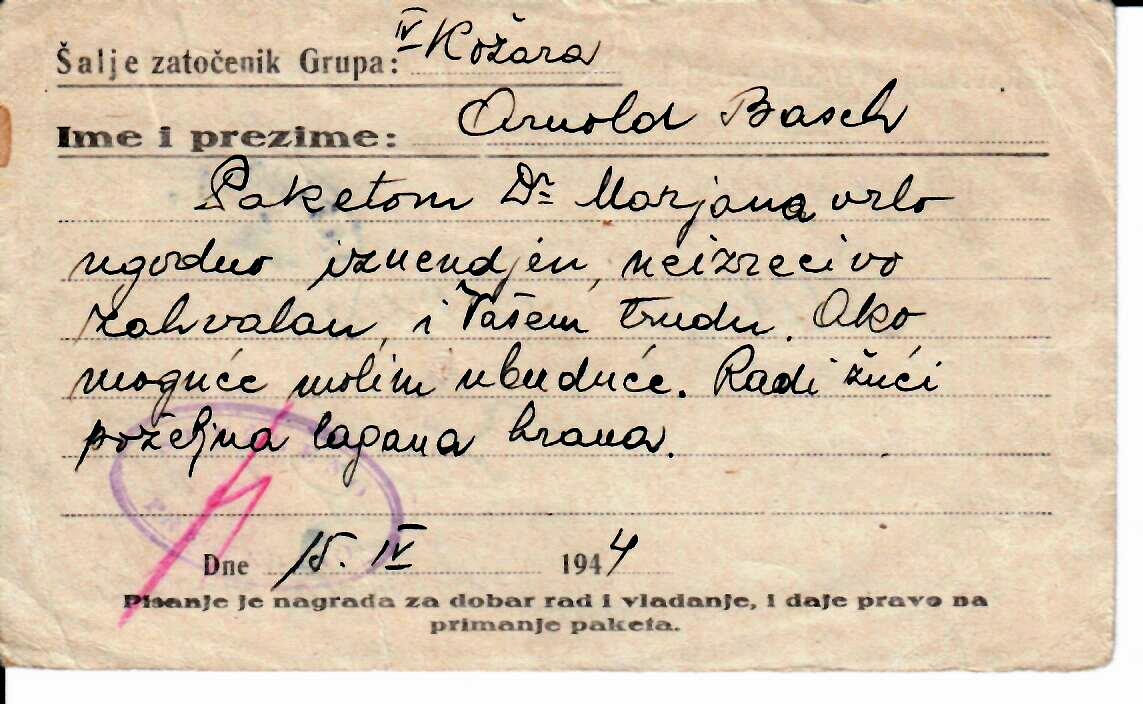 Šalje zatočenik Grupa: IV Kožara
Ime i prezime: Arnold Basch
Paketom Dr Marjana vrlo
ugodno iznendjen, neizrecivo
zahvalan, i Vašem trudu. Ako
moguće molim ubuduće. Radi žući
poželjna lagana hrana.
Dne 15. IV 1944
Pisanje je nagrada za dobar rad i vladanje, i daje pravo na
primanje paketa.